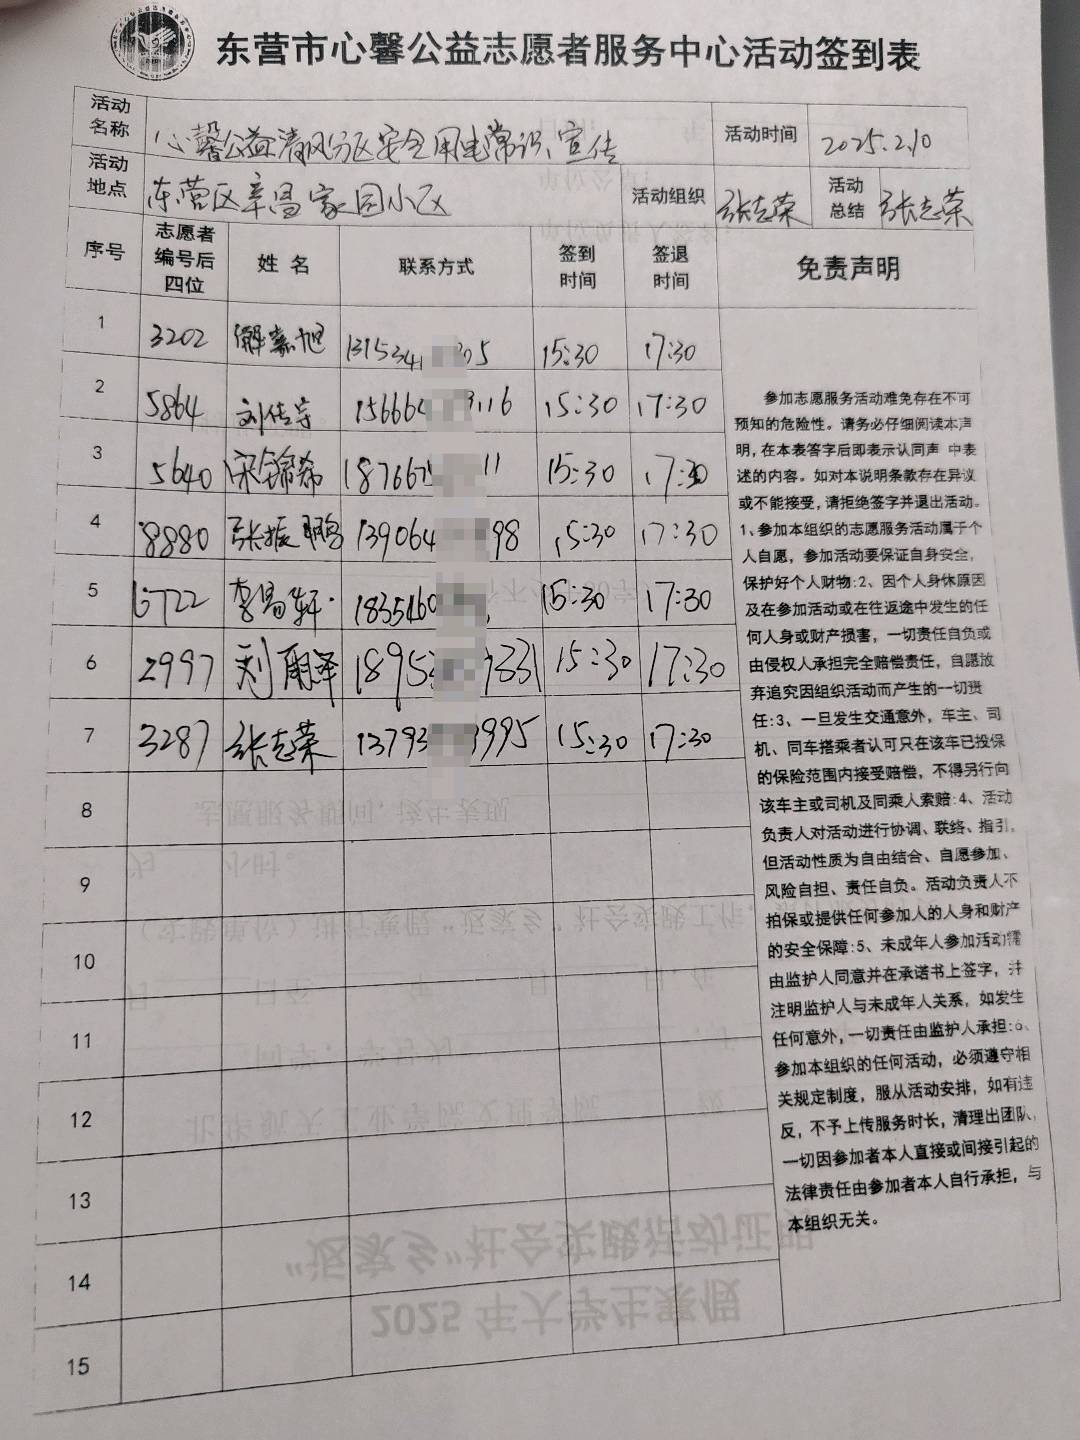 东营市心馨公益志愿者服务中心活动签到表
活动名称 心馨公益清风分区安全用电常识宣传 活动时间 2025.2.10
活动地点 东营区辛昌家园小区 活动组织 张志荣 活动总结 张志荣
序号 志愿者编号后四位 姓名 联系方式 签到时间 签退时间 免责声明
1 3202 解嘉旭 1315341 05 15:30 17:30
2 5864 刘佳宇 156664 116 15:30 17:30
3 5640 宋锦希 187667 11 15:30 17:30
4 8880 张振鹏 139064 98 15:30 17:30
5 6722 李昌轩 1835460 15:30 17:30
6 2997 刘 泽 18953 331 15:30 17:30
7 3287 张志荣 13793 995 15:30 17:30
8
9
10
11
12
13
14
15
参加志愿服务活动难免存在不可
预知的危险性。请务必仔细阅读本声
明,在本表签字后即表示认同声 中表
述的内容。如对本说明条款存在异议
或不能接受,请拒绝签字并退出活动。
1、参加本组织的志愿服务活动属于个
人自愿,参加活动要保证自身安全,
保护好个人财物:2、因个人身体原因
及在参加活动或在往返途中发生的任
何人身或财产损害,一切责任自负或
由侵权人承担完全赔偿责任,自愿放
弃追究因组织活动而产生的一切责
任:3、一旦发生交通意外,车主、司
机、同车搭乘者认可只在该车已投保
的保险范围内接受赔偿,不得另行向
该车主或司机及同乘人索赔:4、活动
负责人对活动进行协调、联络、指引,
但活动性质为自由结合、自愿参加、
风险自担、责任自负。活动负责人不
拍保或提供任何参加人的人身和财产
的安全保障:5、未成年人参加活动需
由监护人同意并在承诺书上签字,并
注明监护人与未成年人关系,如发生
任何意外,一切责任由监护人承担:6、
参加本组织的任何活动,必须遵守相
关规定制度,服从活动安排,如有违
反,不予上传服务时长,清理出团队,
一切因参加者本人直接或间接引起的
法律责任由参加者本人自行承担,与
本组织无关。